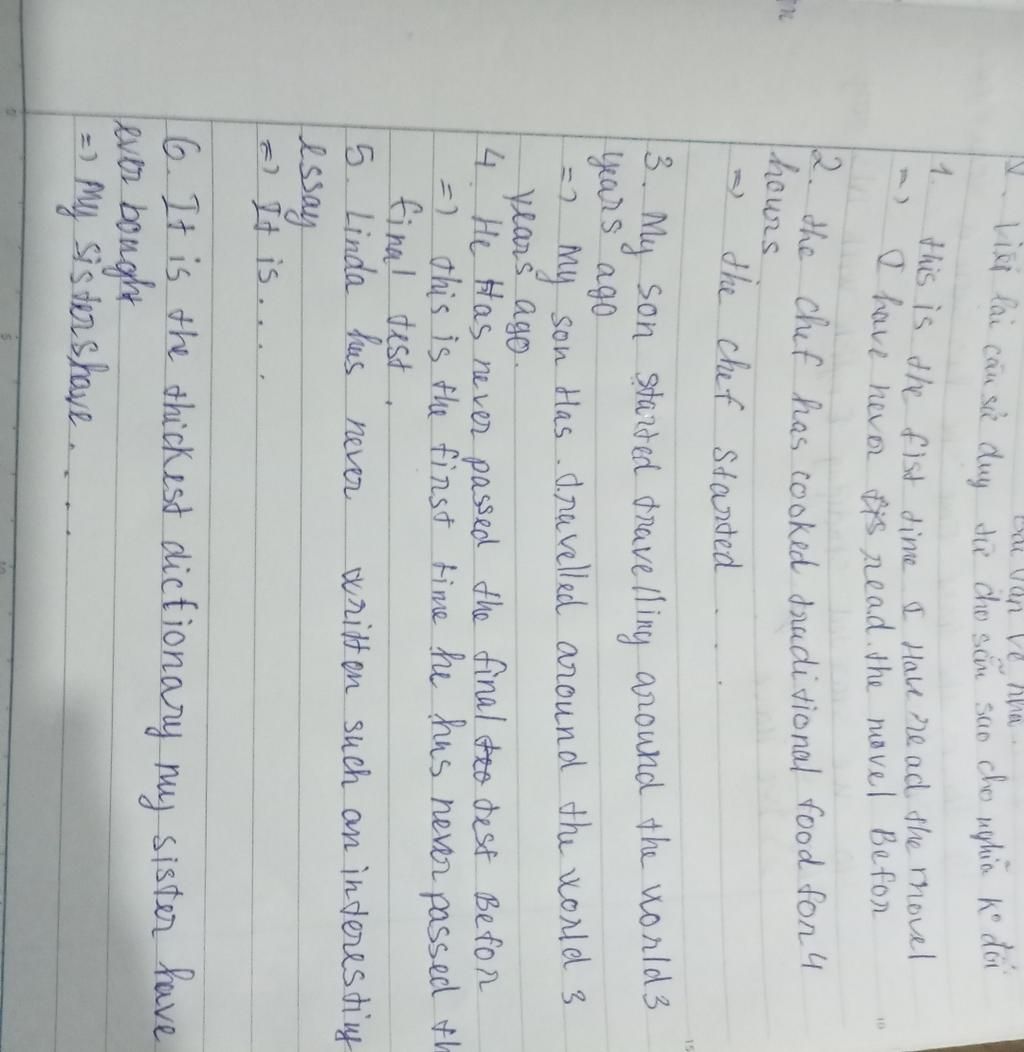 Bài Văn Về Nhà.
V. Viết lại câu sử dụng từ cho sẵn sao cho nghĩa K° đổi
1. this is the fist time I Have read the novel
=> I have never read the novel Befor
2. the chef has cooked traditional food for 4
hours
=> the chef started . . .
3. My son started travelling around the world 3
years ago
=> My son Has travelled around the world 3
years ago.
4. He Has never passed the final test Befor
=> this is the first time he has never passed th
final test.
5. Linda has never written such an interesting
essay
=> It is . . . .
6. It is the thickest dictionary my sister have
ever bought
=> My sister share . . . .